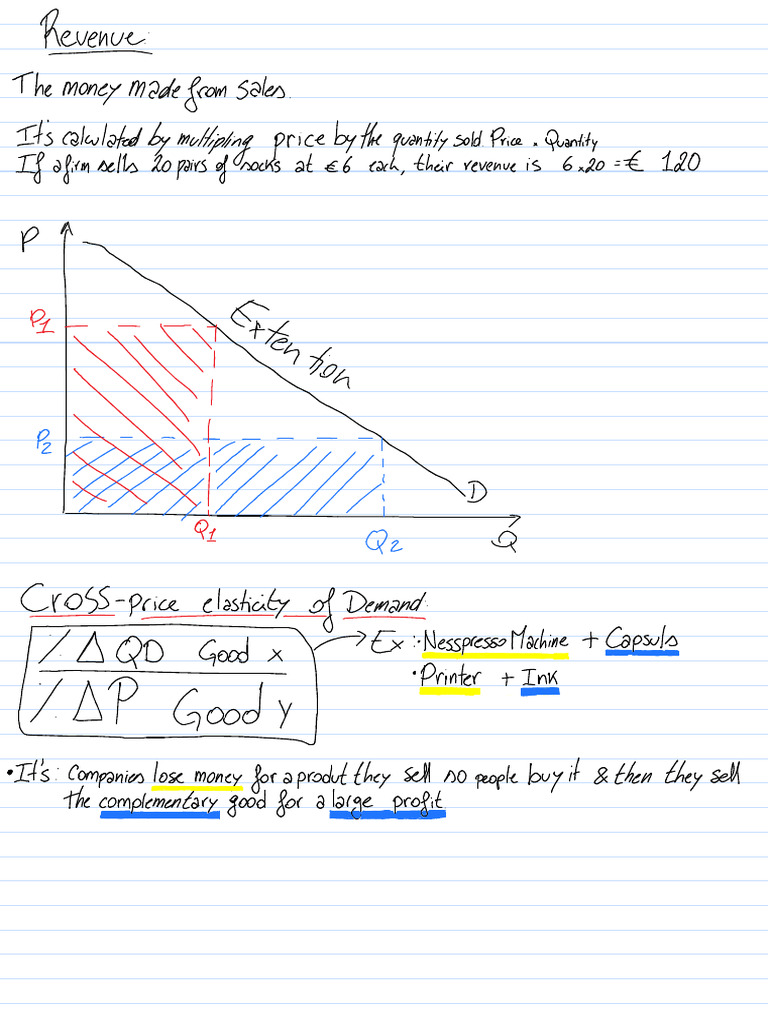 Revenue:
The money made from sales.
It's calculated by multipling price by the quantity sold. Price × Quantity
If a firm sells 20 pairs of socks at €6 each, their revenue is 6×20 = € 120
P
P1
Extention
P2
D
Q1
Q2
Q
Cross-price elasticity of Demand:
% Δ QD Good x
% Δ P Good y
Ex: · Nesspresso Machine + Capsuls
· Printer + Ink
• It's: Companies lose money for a produt they sell so people buy it & then they sell
the complementary good for a large profit